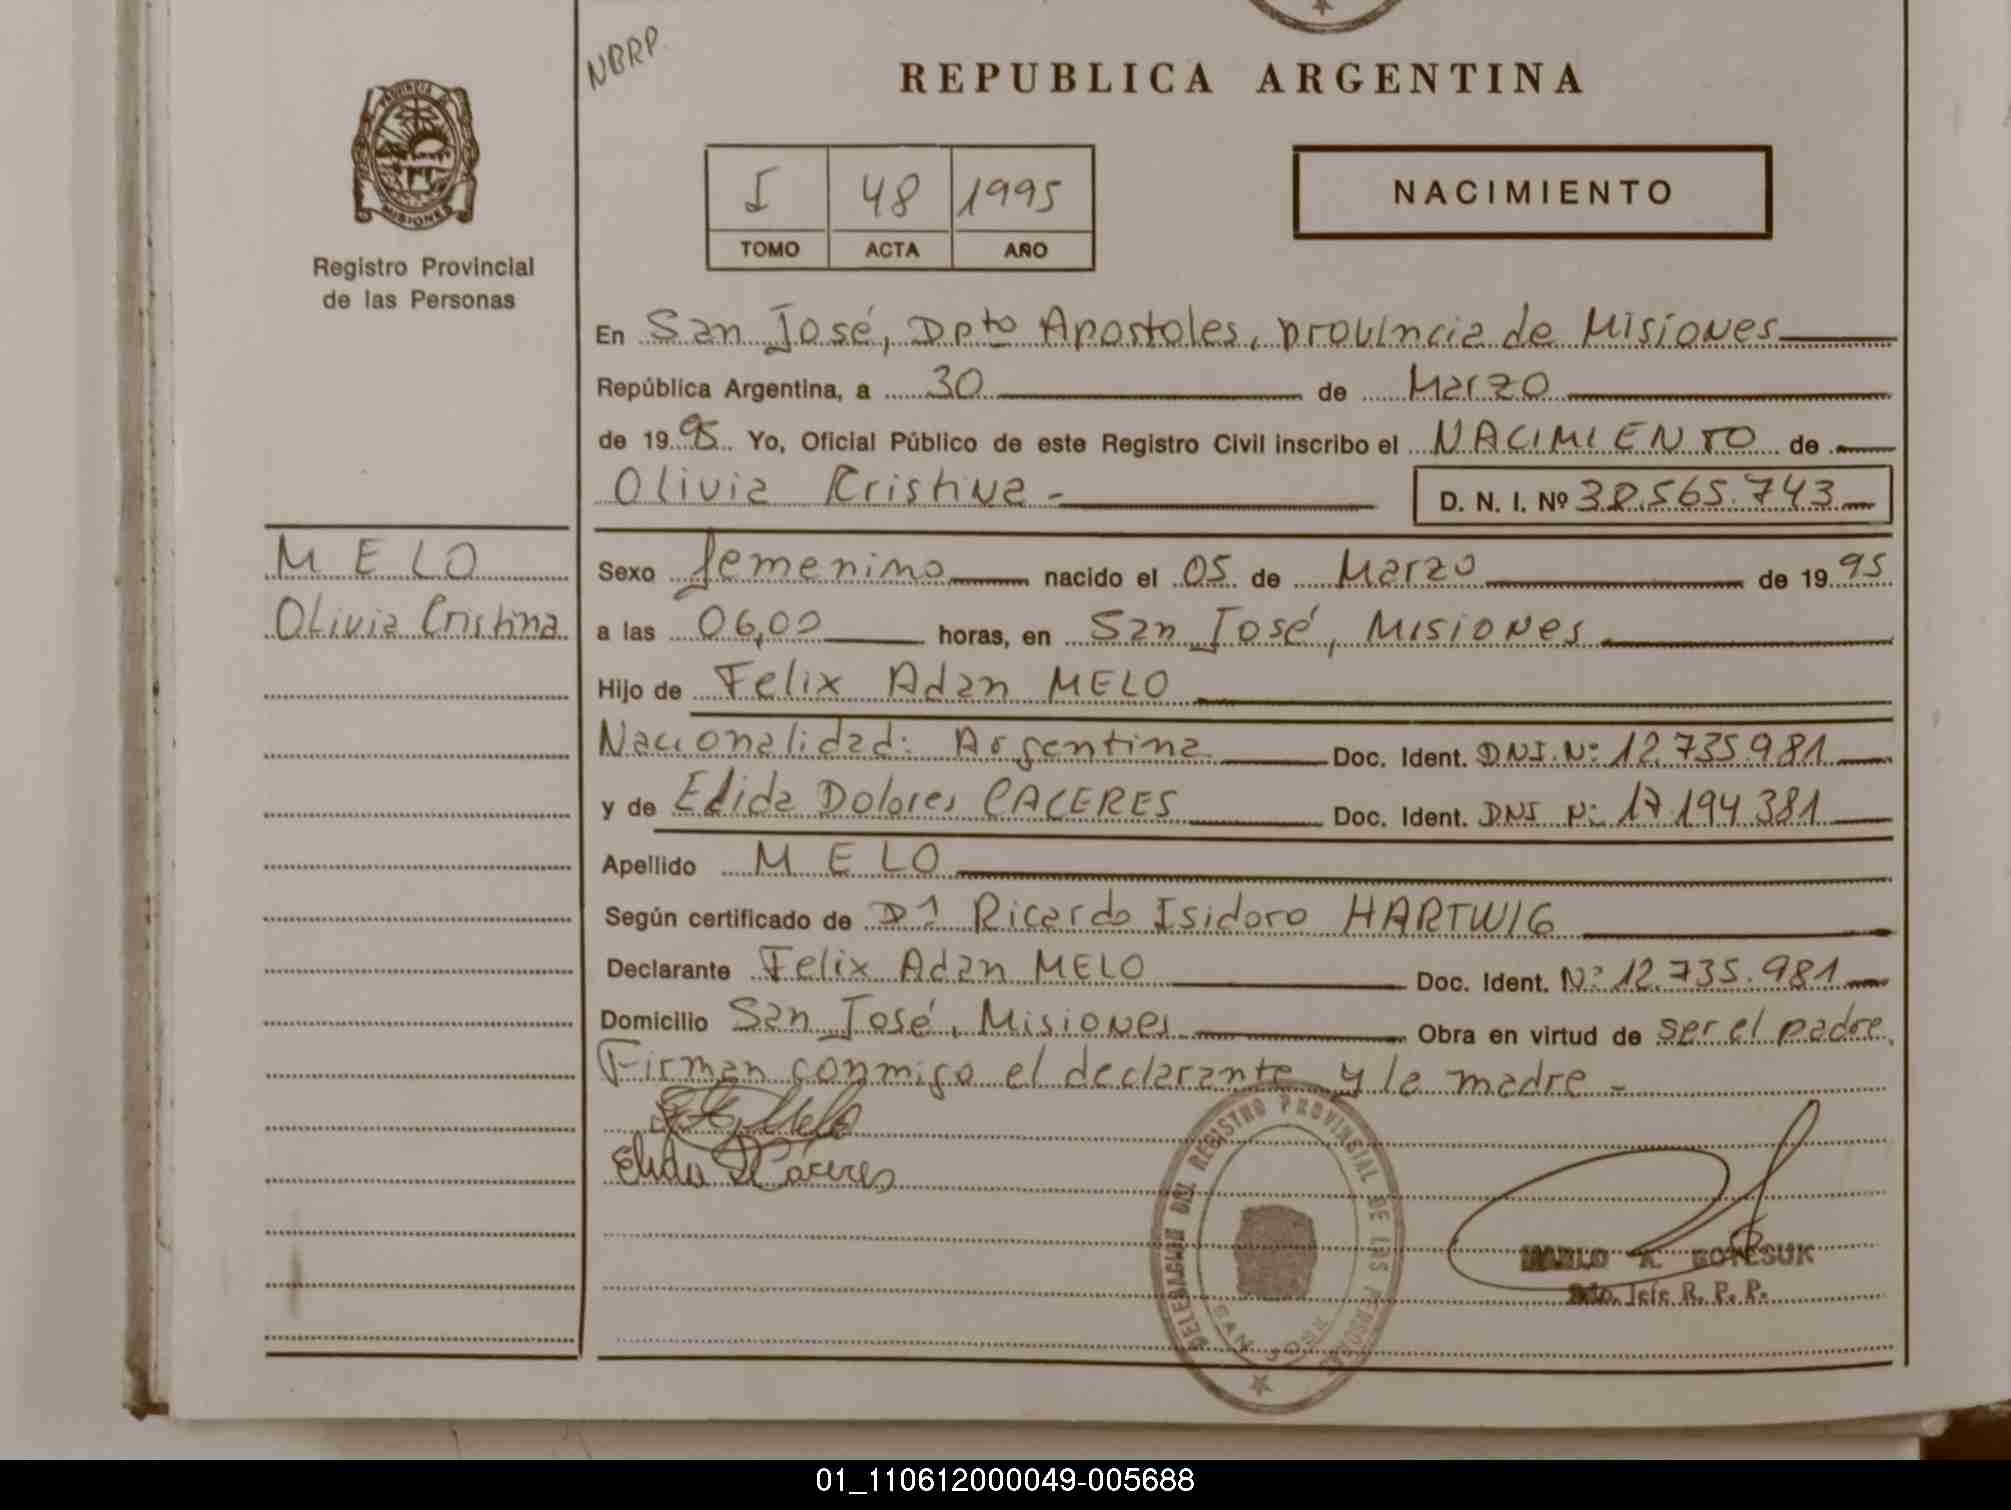 NBRP.
REPUBLICA ARGENTINA
PROVINCIA D
MISIONES
Registro Provincial
de las Personas
I 48 1995
TOMO ACTA AÑO
NACIMIENTO
En San José, Dpto Apostoles, provincia de Misiones
República Argentina, a 30 de Marzo
de 1995 Yo, Oficial Público de este Registro Civil inscribo el NACIMIENTO de
Olivia Cristina - D. N. I. Nº 38.565.743
MELO
Olivia Cristina
Sexo femenino nacido el 05 de Marzo de 1995
a las 06,00 horas, en San José, Misiones
Hijo de Felix Adan MELO
Nacionalidad: Argentina Doc. Ident. DNI. Nº 12.735.981
y de Elida Dolores CACERES Doc. Ident. DNI Nº 17.194.381
Apellido MELO
Según certificado de Dr Ricardo Isidoro HARTWIG
Declarante Felix Adan MELO Doc. Ident. Nº 12.735.981
Domicilio San José, Misiones Obra en virtud de ser el padre.
Firman conmigo el declarante y la madre -
Melo
Elida D Cáceres
DELEGACION DEL REGISTRO PROVINCIAL DE LAS PERSONAS
SAN JOSE
A. BOTESUK
Jefe R. P. P.
01_110612000049-005688